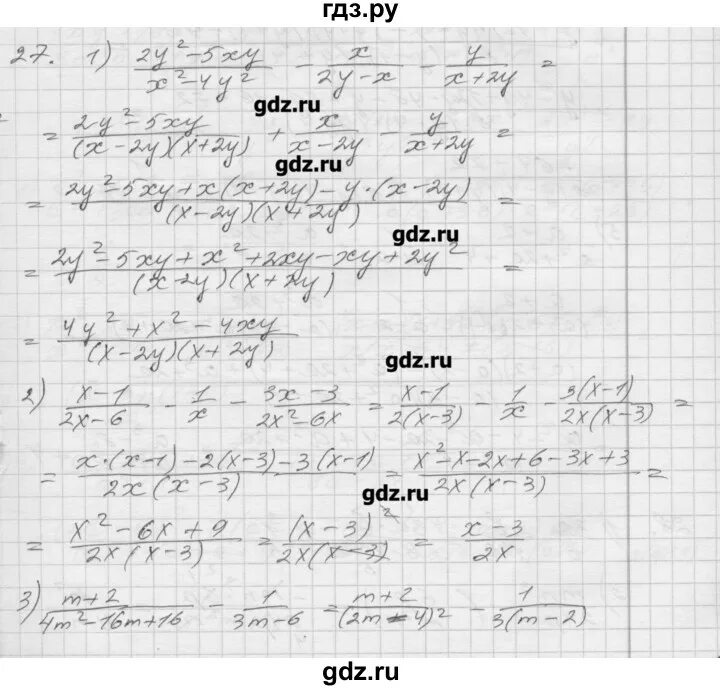 гдз.ру
27. 1) (2y²-5xy)/(x²-4y²) - x/(2y-x) - y/(x+2y) =
gdz.ru
= (2y²-5xy)/((x-2y)(x+2y)) + x/(x-2y) - y/(x+2y) =
gdz.ru
= (2y²-5xy+x(x+2y)-y·(x-2y))/((x-2y)(x+2y)) =
gdz.ru
= (2y²-5xy+x²+2xy-xy+2y²)/((x-2y)(x+2y)) =
= (4y²+x²-4xy)/((x-2y)(x+2y))
gdz.ru
2) (x-1)/(2x-6) - 1/x - (3x-3)/(2x²-6x) = (x-1)/(2(x-3)) - 1/x - 3(x-1)/(2x(x-3)) =
= (x·(x-1)-2(x-3)-3(x-1))/(2x(x-3)) = (x²-x-2x+6-3x+3)/(2x(x-3)) =
gdz.ru
= (x²-6x+9)/(2x(x-3)) = (x-3)²/(2x(x-3)) = (x-3)/(2x)
3) (m+2)/(4m²-16m+16) - 1/(3m-6) = (m+2)/(2m-4)² - 1/(3(m-2))
gdz.ru